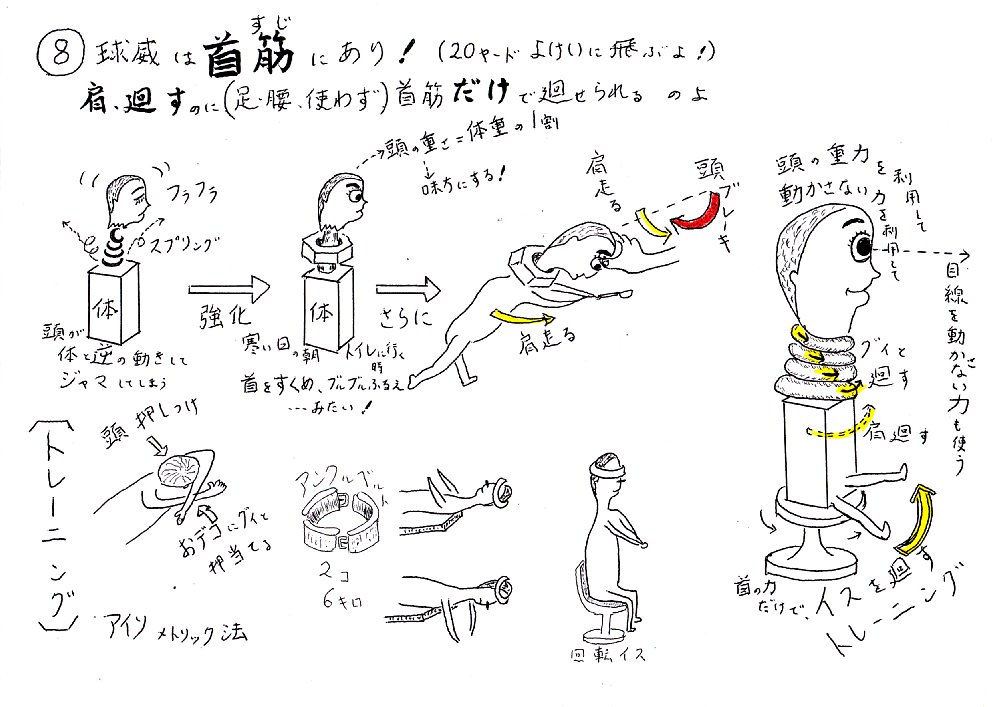 ⑧ 球威は首筋にあり!(20ヤードよけいに飛ぶよ!)
すじ
肩、廻すのに(足・腰、使わず)首筋だけで廻せられるのよ
フラフラ
スプリング
体
頭が
体と逆の動きして
ジャマしてしまう
強化
頭の重さ=体重の1割
味方にする!
体
寒い日の朝 トイレに行く時
首をすくめ、ブルブルふるえ
…みたい!
さらに
肩走る
頭ブレーキ
肩走る
頭の重力を利用して
動かさない力を利用して
目線を動かさない力も使う
グイと
廻す
肩廻す
首の力
だけで、イスを廻す
トレーニング
[トレーニング]
頭押しつけ
おデコにグイと
押当てる
アイソメトリック法
アンクルベルト
2コ
6キロ
回転イス